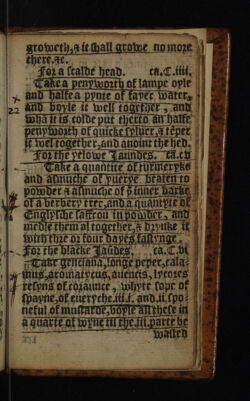 groweth, & it shall growe no more
there. &c.
For a scalde head. ca. C. iiii.
Take a penyworth of lampe oyle
and halfe a pynte of fayer water,
and boyle it well together, and
whā it is colde put therto an halfe
penyworth of quicke syluer, & tēper
it wel together, and anoint the hed.
For the yelowe Jaundes. ca. cv
Take a quantite of turmeryke
and asmuche of yuerye beaten to
powder & asmuche of þͤ inner barke
of a berbery tree, and a quantyte of
Englysche saffron in powder, and
medle them al together, & drynke it
with thre or four dayes fastynge.
For the blacke Jaūdes. ca. C. vi
Take genciana, longe peper, cala
mus, aromatycus, auencis, lycores
resyns of coraunce, whyte sope of
spayne, of eueryche. iii. ʒ. and. ii. spo
neful of mustarde, boyle all these in
a quarte of wyne til the .iii. parte be
wasted
x
22